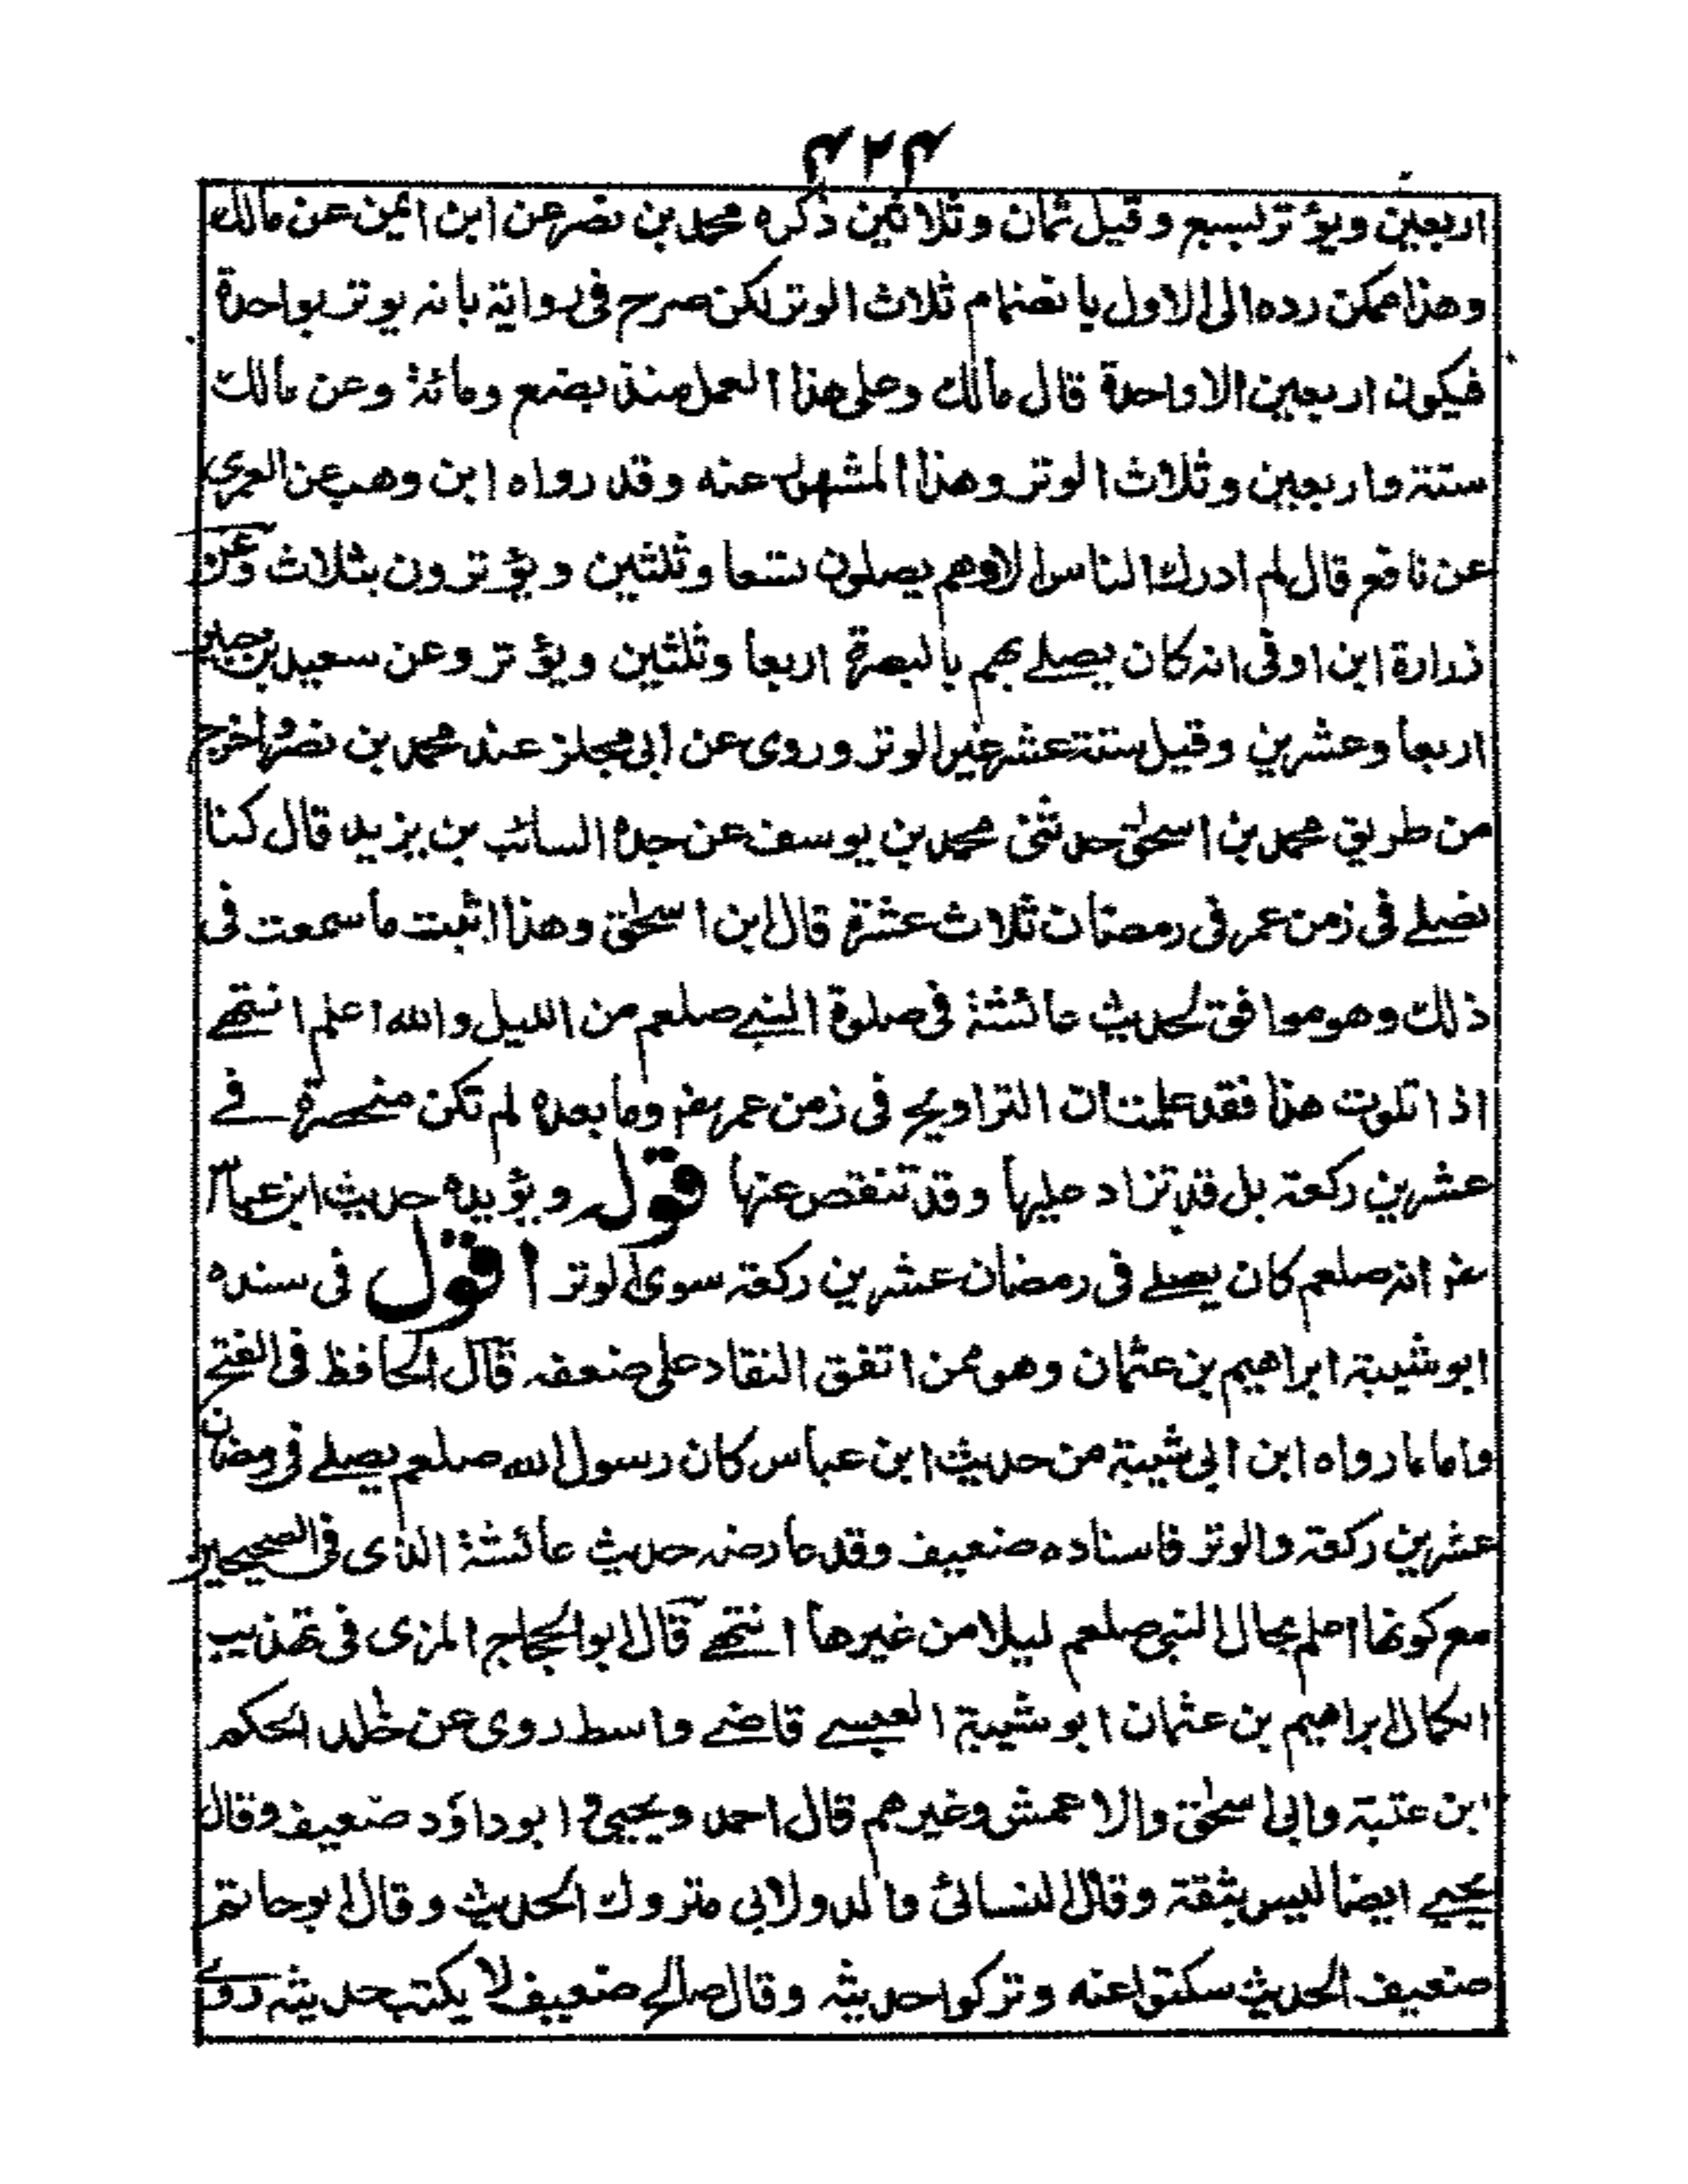 ۴۲۴
اربعين ويؤتر بسبع وقيل ثمان وثلاثين ذكره محمد بن نصر عن ابن ايمن عن مالك
وهذا يمكن رده الى الاول بانضمام ثلاث الوتر لكن صرح فى رواية بانه يوتر بواحدة
فيكون اربعين الا واحدة قال مالك وعلى هذا العمل منذ بضع ومائة وعن مالك
ستة واربعين وثلاث الوتر وهذا المشهور عنه وقد رواه ابن وهب عن العمرى
عن نافع قال لم ادرك الناس الا وهم يصلون تسعا وثلثين ويؤترون بثلاث وعن
زرارة ابن اوفى انه كان يصلے بهم بالبصرة اربعا وثلثين ويؤتر وعن سعيد بن جبير
اربعا وعشرين وقيل ستة عشر غير الوتر وروى عن ابى مجلز عند محمد بن نصر واخرج
من طريق محمد بن اسحٰق حدثنى محمد بن يوسف عن جده السائب بن يزيد قال كنا
نصلے فى زمن عمر فى رمضان ثلاث عشرة قال ابن اسحٰق وهذا اثبت ما سمعت فى
ذلك وهو موافق لحديث عائشة فى صلوة النبے صلعم من الليل والله اعلم انتهے
اذا تلوت هذا فقد علمت ان التراويح فى زمن عمر رضـ وما بعده لم تكن منحصرة فے
عشرين ركعة بل قد تزاد عليها وقد تنقص عنها قولہ ويؤيده حديث ابن عباس
رضـ انه صلعم كان يصلے فى رمضان عشرين ركعة سوى الوتر اقول فى سنده
ابو شيبة ابراهيم بن عثمان وهو ممن اتفق النقاد على ضعفه قال الحافظ فى الفتح
واما ما رواه ابن ابى شيبة من حديث ابن عباس كان رسول الله صلعم يصلے فى رمضان
عشرين ركعة والوتر فاسناده ضعيف وقد عارضه حديث عائشة الذى فى الصحيحين
مع كونها اعلم بحال النبى صلعم ليلا من غيرها انتهے قال ابو الحجاج المزى فى تهذيب
الكمال ابراهيم بن عثمان ابو شيبة العبسے قاضے واسط روى عن خاله الحكم
ابن عتبة وابى اسحٰق والاعمش وغيرهم قال احمد ويحيى وابو داؤد ضعيف وقال
يحيے ايضا ليس بثقة وقال النسائى والدولابى متروك الحديث وقال ابو حاتم
ضعيف الحديث سكتوا عنه وتركوا حديثه وقال صالح ضعيف لا يكتب حديثه روى